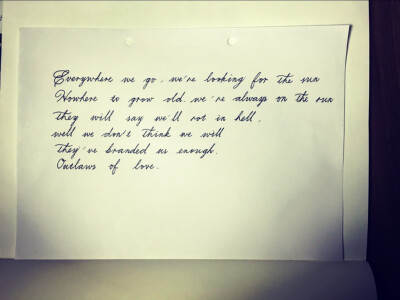 Everywhere we go, we're looking for the sun
Nowhere to grow old. we're always on the run
they will say we'll rot in hell.
well we don't think we will
they've branded us enough.
Outlaws of love.